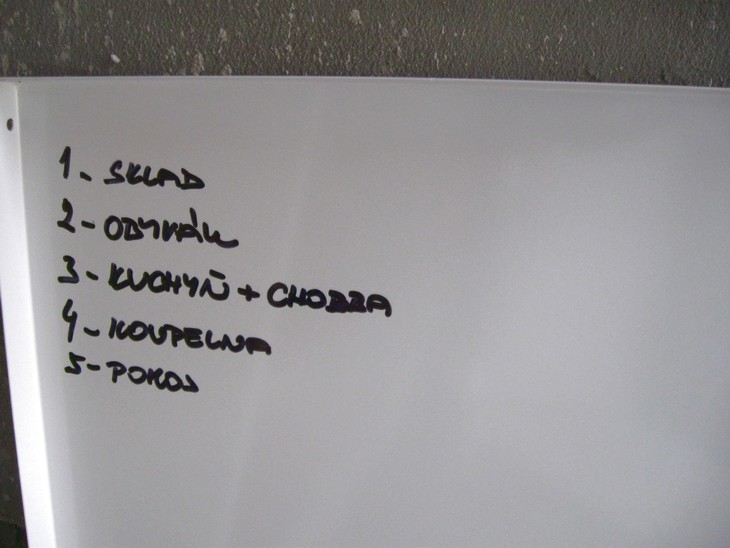 1- SKLAD
2- OBYVÁK
3- KUCHYŇ + CHODBA
4- KOUPELNA
5- POKOJ